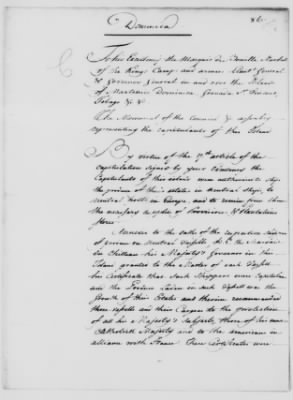 Dominica
To his Excellency the Marquis de Bouillé Marshal
of the Kings Camps and armies Lieut. General
& Governor General in and over the Islands
of Martinico Dominica Grenada St. Vincent
Tobago &c &c
The Memorial of the Council & assembly
representing the capitulants of this Island
By virtue of the 17th article of the
capitulation signed by your Excellency the
Capitulants of this Island were authorised to ship
the produce of their estates in neutral ships, to
neutral ports in Europe, and to receive from them
the necessary supplies of Provisions & Plantation
stores
Masters to the
of produce on Neutral Vessells the Marquis
du Chilleau his Majesty's Governor in this
Island granted to the Master of each Vessel
his Certificate that such Shippers were Capitulants
and the Produce Laden in such Vessell was the
Growth of their Estates and therein recommended
those Vessells and their Cargoes to the protection
of all his Majesty's Subjects, those of his most
Catholick Majesty and to the americans in
alliance with France. These Certificates were